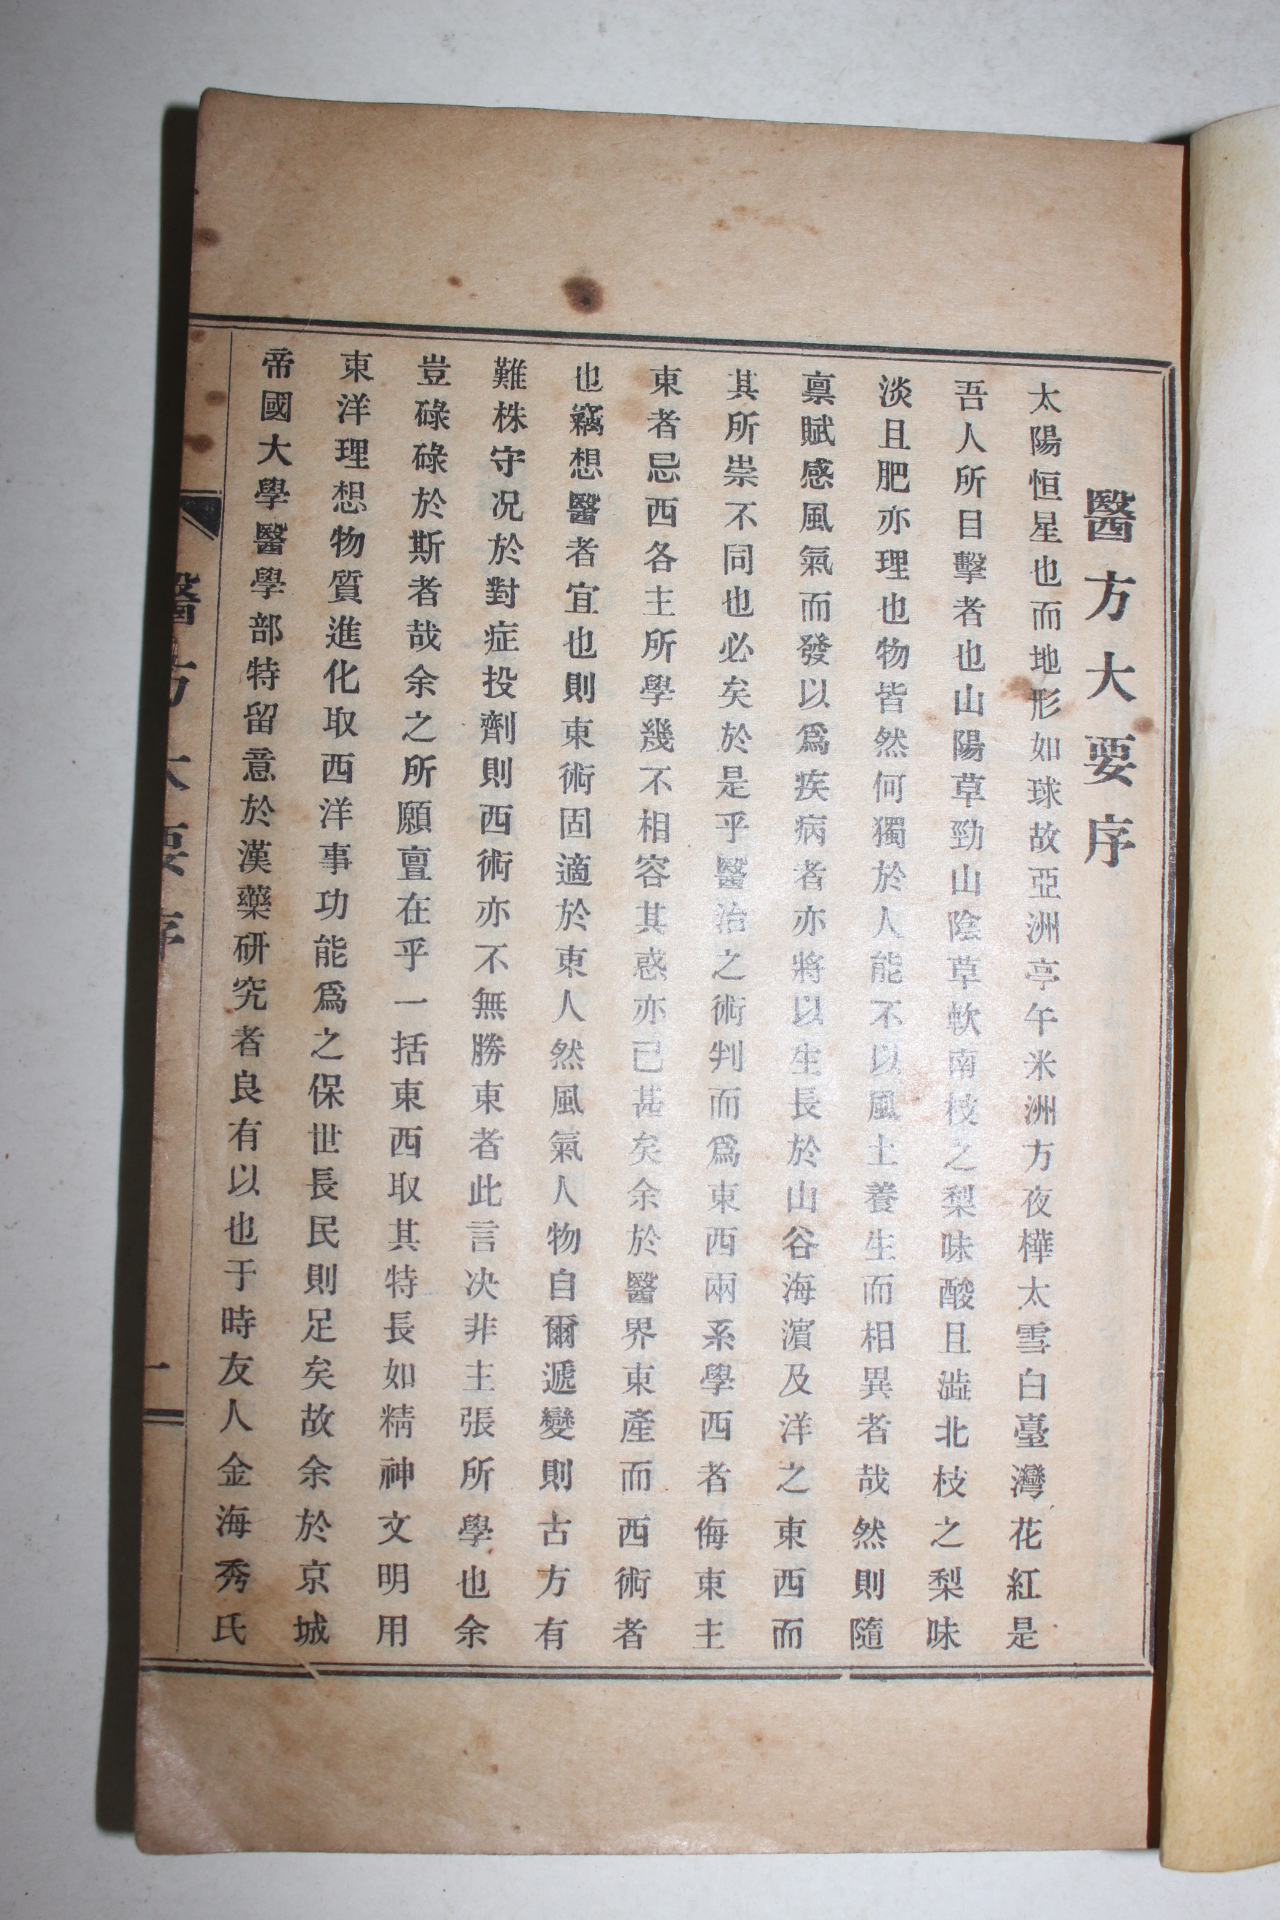 醫方大要序
太陽恒星也而地形如球故亞洲亭午米洲方夜樺太雪白臺灣花紅是
吾人所目擊者也山陽草勁山陰草軟南枝之梨味酸且澁北枝之梨味
淡且肥亦理也物皆然何獨於人能不以風土養生而相異者哉然則隨
稟賦感風氣而發以爲疾病者亦將以生長於山谷海濱及洋之東西而
其所崇不同也必矣於是乎醫治之術判而爲東西兩系學西者侮東主
東者忌西各主所學幾不相容其惑亦已甚矣余於醫界東產而西術者
也竊想醫者宜也則東術固適於東人然風氣人物自爾遞變則古方有
難株守况於對症投劑則西術亦不無勝東者此言决非主張所學也余
豈碌碌於斯者哉余之所願亶在乎一括東西取其特長如精神文明用
東洋理想物質進化取西洋事功能爲之保世長民則足矣故余於京城
帝國大學醫學部特留意於漢藥研究者良有以也于時友人金海秀氏
醫方大要序
一